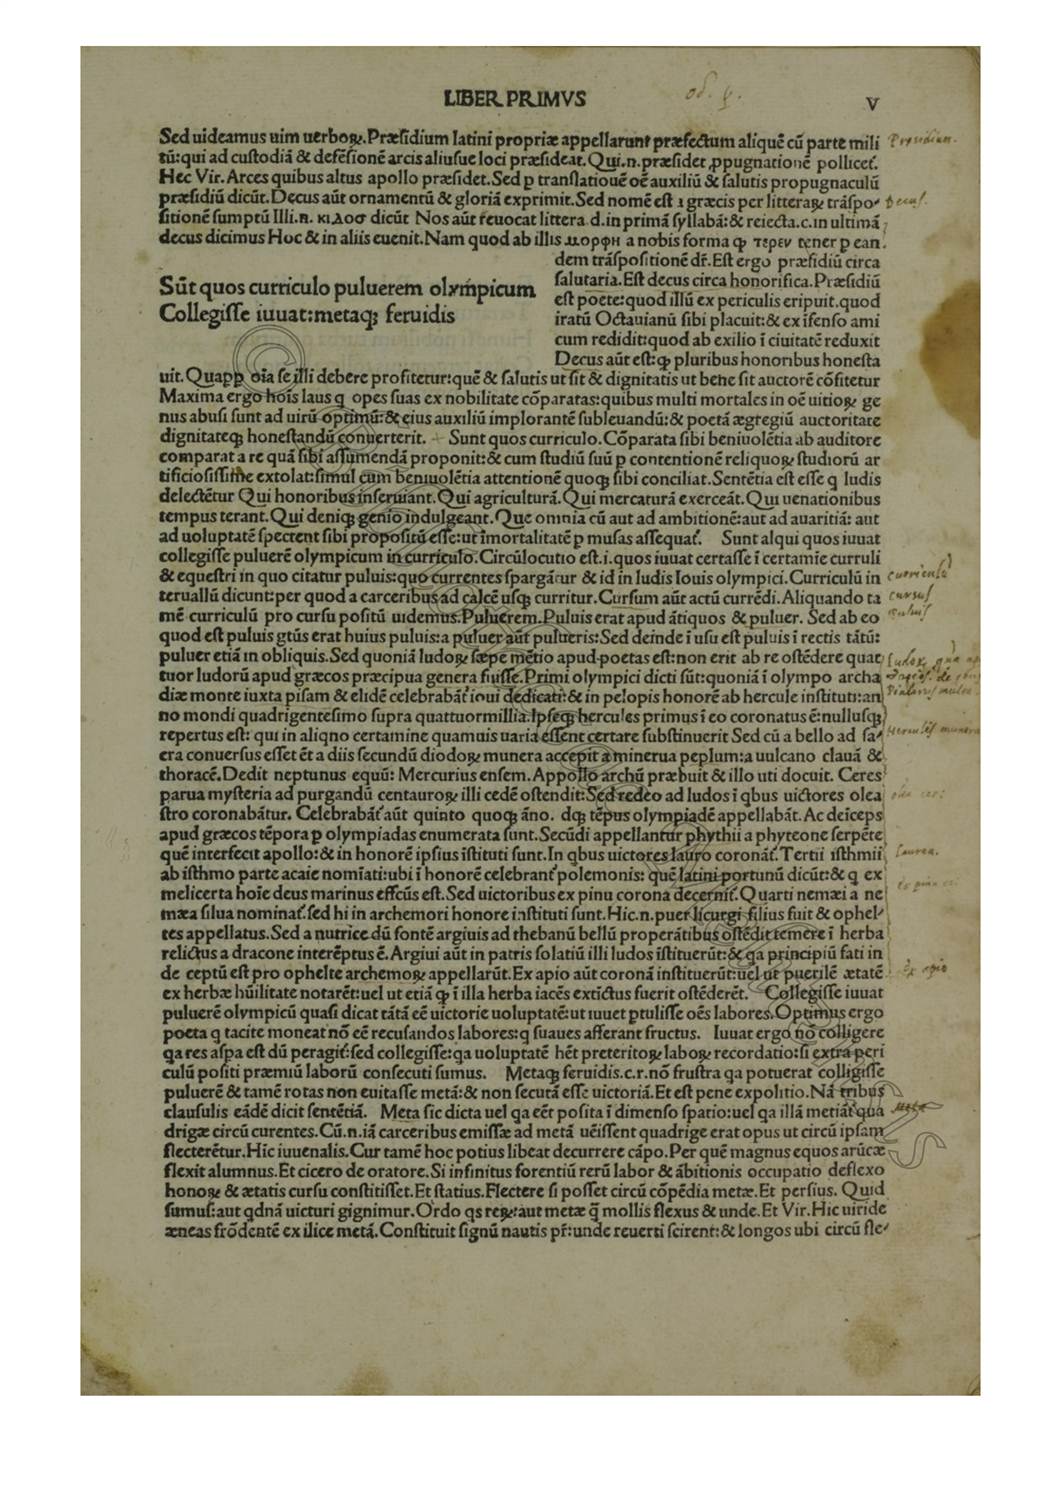 LIBER PRIMVS
V
Sed uideamus uim uerboꝝ. Præsidium latini propriæ appellarunt præfectum aliquē cū parte mili
tū: qui ad custodiā & defēsionē arcis aliusue loci præsideat. Qui.n. præsidet ꝓpugnationē pollicet.
Hec Vir. Arces quibus altus apollo præsidet. Sed p translationē oē auxiliū & salutis propugnaculū
præsidiū dicūt. Decus aūt ornamentū & gloriā exprimit. Sed nomē est a græcis per litteraꝝ trāspo-
sitionē sumptū Illi.n. κιλοσ dicūt Nos aūt reuocat littera d. in primā syllabā: & reiecta.c. in ultimā
decus dicimus Hoc & in aliis euenit. Nam quod ab illis μορφη a nobis forma ꝙ τερεν tener p ean
dem trāspositionē dr̄. Est ergo præsidiū circa
salutaria. Est decus circa honorifica. Præsidiū
est poete: quod illū ex periculis eripuit. quod
iratū Octauianū sibi placuit: & ex īfenso ami
cum rediditː quod ab exilio ī ciuitatē reduxit
Decus aūt est: ꝙ pluribus honoribus honesta
Sūt quos curriculo puluerem olympicum
Collegisse iuuat: metaqꝫ feruidis
uit. Quapp oīa se illi debere profitetur: quē & salutis ut sit & dignitatis ut bene sit auctorē cōfitetur
Maxima ergo hoīs laus q opes suas ex nobilitate cōparatas: quibus multi mortales in oē uitioꝝ ge
nus abusi sunt ad uirū optimū: & eius auxiliū implorantē subleuandū: & poetā ægregiū auctoritate
dignitateqꝫ honestandū conuerterit. Sunt quos curriculo. Cōparata sibi beniuolētia ab auditore
comparat a re quā sibi assumendā proponit: & cum studiū suū p contentionē reliquoꝝ studiorū ar
tificiosissime extolat: simul cum beniuolētia attentionē quoqꝫ sibi conciliat. Sentētia est esse q ludis
delectētur Qui honoribus inseruiant. Qui agriculturā. Qui mercaturā exerceāt. Qui uenationibus
tempus terant. Qui deniqꝫ genio indulgeant. Que omnia cū aut ad ambitionē: aut ad auaritiā: aut
ad uoluptatē spectent sibi propositū esse: ut īmortalitatē p musas assequat. Sunt alqui quos iuuat
collegisse puluerē olympicum in curriculo. Circūlocutio est. i. quos iuuat certasse ī certamīe curruli
& equestri in quo citatur puluis: quo currentes spargātur & id in ludis Iouis olympici. Curriculū in
teruallū dicunt: per quod a carceribus ad calcē usqꝫ curritur. Cursum aūt actū currēdi. Aliquando ta
mē curriculū pro cursu positū uidemus. Puluerem. Puluis erat apud ātiquos & puluer. Sed ab eo
quod est puluis gtūs erat huius puluis: a puluer aūt pulueris: Sed deinde ī usu est puluis ī rectis tātū:
puluer etiā in obliquis. Sed quoniā ludoꝝ sæpe mētio apud poetas est: non erit ab re ostēdere quat
tuor ludorū apud græcos præcipua genera fuisse. Primi olympici dicti sūt: quoniā ī olympo archa
diæ monte iuxta pisam & elidē celebrabāt ioui dedicati: & in pelopis honorē ab hercule instituti: an
no mondi quadrigentesimo supra quattuormillia. Ipseqꝫ hercules primus ī eo coronatus ē: nullusqꝫ
repertus est: qui in aliqno certamine quamuis uaria essent certare substinuerit Sed cū a bello ad sa
cra conuersus esset ēt a diis secundū diodoꝝ munera accepit a minerua peplum: a uulcano clauā &
thoracē. Dedit neptunus equū: Mercurius ensem. Appollo archū præbuit & illo uti docuit. Ceres
parua mysteria ad purgandū centauroꝝ illi cedē ostendit: Sed redeo ad ludos ī qbus uictores olea
stro coronabātur. Celebrabāt aūt quinto quoqꝫ āno. dqꝫ tēpus olympiadē appellabāt. Ac deīceps
apud græcos tēpora p olympiadas enumerata sunt. Secūdi appellantur phythii a phyteone serpēte
quē interfecit apollo: & in honorē ipsius īstituti sunt. In qbus uictores lauro coronāt. Tertii isthmii
ab isthmo parte acaie nomīati: ubi ī honorē celebrant polemonis: quē latini portunū dicūt: & q ex
melicerta hoīe deus marinus effcūs est. Sed uictoribus ex pinu corona decernit. Quarti nemæi a ne
mæa silua nominat. sed hi in archemori honore instituti sunt. Hic.n. puer licurgi filius fuit & ophel-
tes appellatus. Sed a nutrice dū fontē argiuis ad thebanū bellū properātibus ostēdit temere ī herba
relictus a dracone interēptus ē. Argiui aūt in patris solatiū illi ludos īstituerūt: & qa principiū fati in
de ceptū est pro ophelte archemoꝝ appellarūt. Ex apio aūt coronā instituerūt: uel ut puerilē ætatē
ex herbæ hūilitate notarēt: uel ut etiā ꝙ ī illa herba iacēs extīctus fuerit ostēderēt. Collegisse iuuat
puluerē olympicū quasi dicat tātā eē uictorie uoluptatē: ut iuuet ptulisse oēs labores. Optimus ergo
poeta q tacite moneat nō eē recusandos labores: q suaues afferant fructus. Iuuat ergo nō colligere
qa res aspa est dū peragit: sed collegisse: qa uoluptatē hēt preteritoꝝ laboꝝ recordatio: si extra peri
culū positi præmiū laborū consecuti sumus. Metaqꝫ feruidis. c.r. nō frustra qa potuerat colligisse
puluerē & tamē rotas non euitasse metā: & non secutā esse uictoriā. Et est pene expolitio. Nā tribus
clausulis eādē dicit sentētiā. Meta sic dicta uel qa eēt posita ī dimenso spatio: uel qa illā metiāt qua
drigæ circū curentes. Cū.n. iā carceribus emissæ ad metā uēissent quadrige erat opus ut circū ipsam
flecterētur. Hic iuuenalis. Cur tamē hoc potius libeat decurrere cāpo. Per quē magnus equos arūcæ
flexit alumnus. Et cicero de oratore. Si infinitus forentiū rerū labor & ābitionis occupatio deflexo
honoꝝ & ætatis cursu constitisset. Et statius. Flectere si posset circū cōpēdia metæ. Et persius. Quid
sumus: aut qdnā uicturi gignimur. Ordo qs reꝝ: aut metæ q̄ mollis flexus & unde. Et Vir. Hic uiride
æneas frōdentē ex ilice metā. Constituit signū nautis pr̄: unde reuerti scirent: & longos ubi circū fle-
Præsidium.
Decus.
curriculū
cursus
puluis
laurea.
Ex apio
Meta